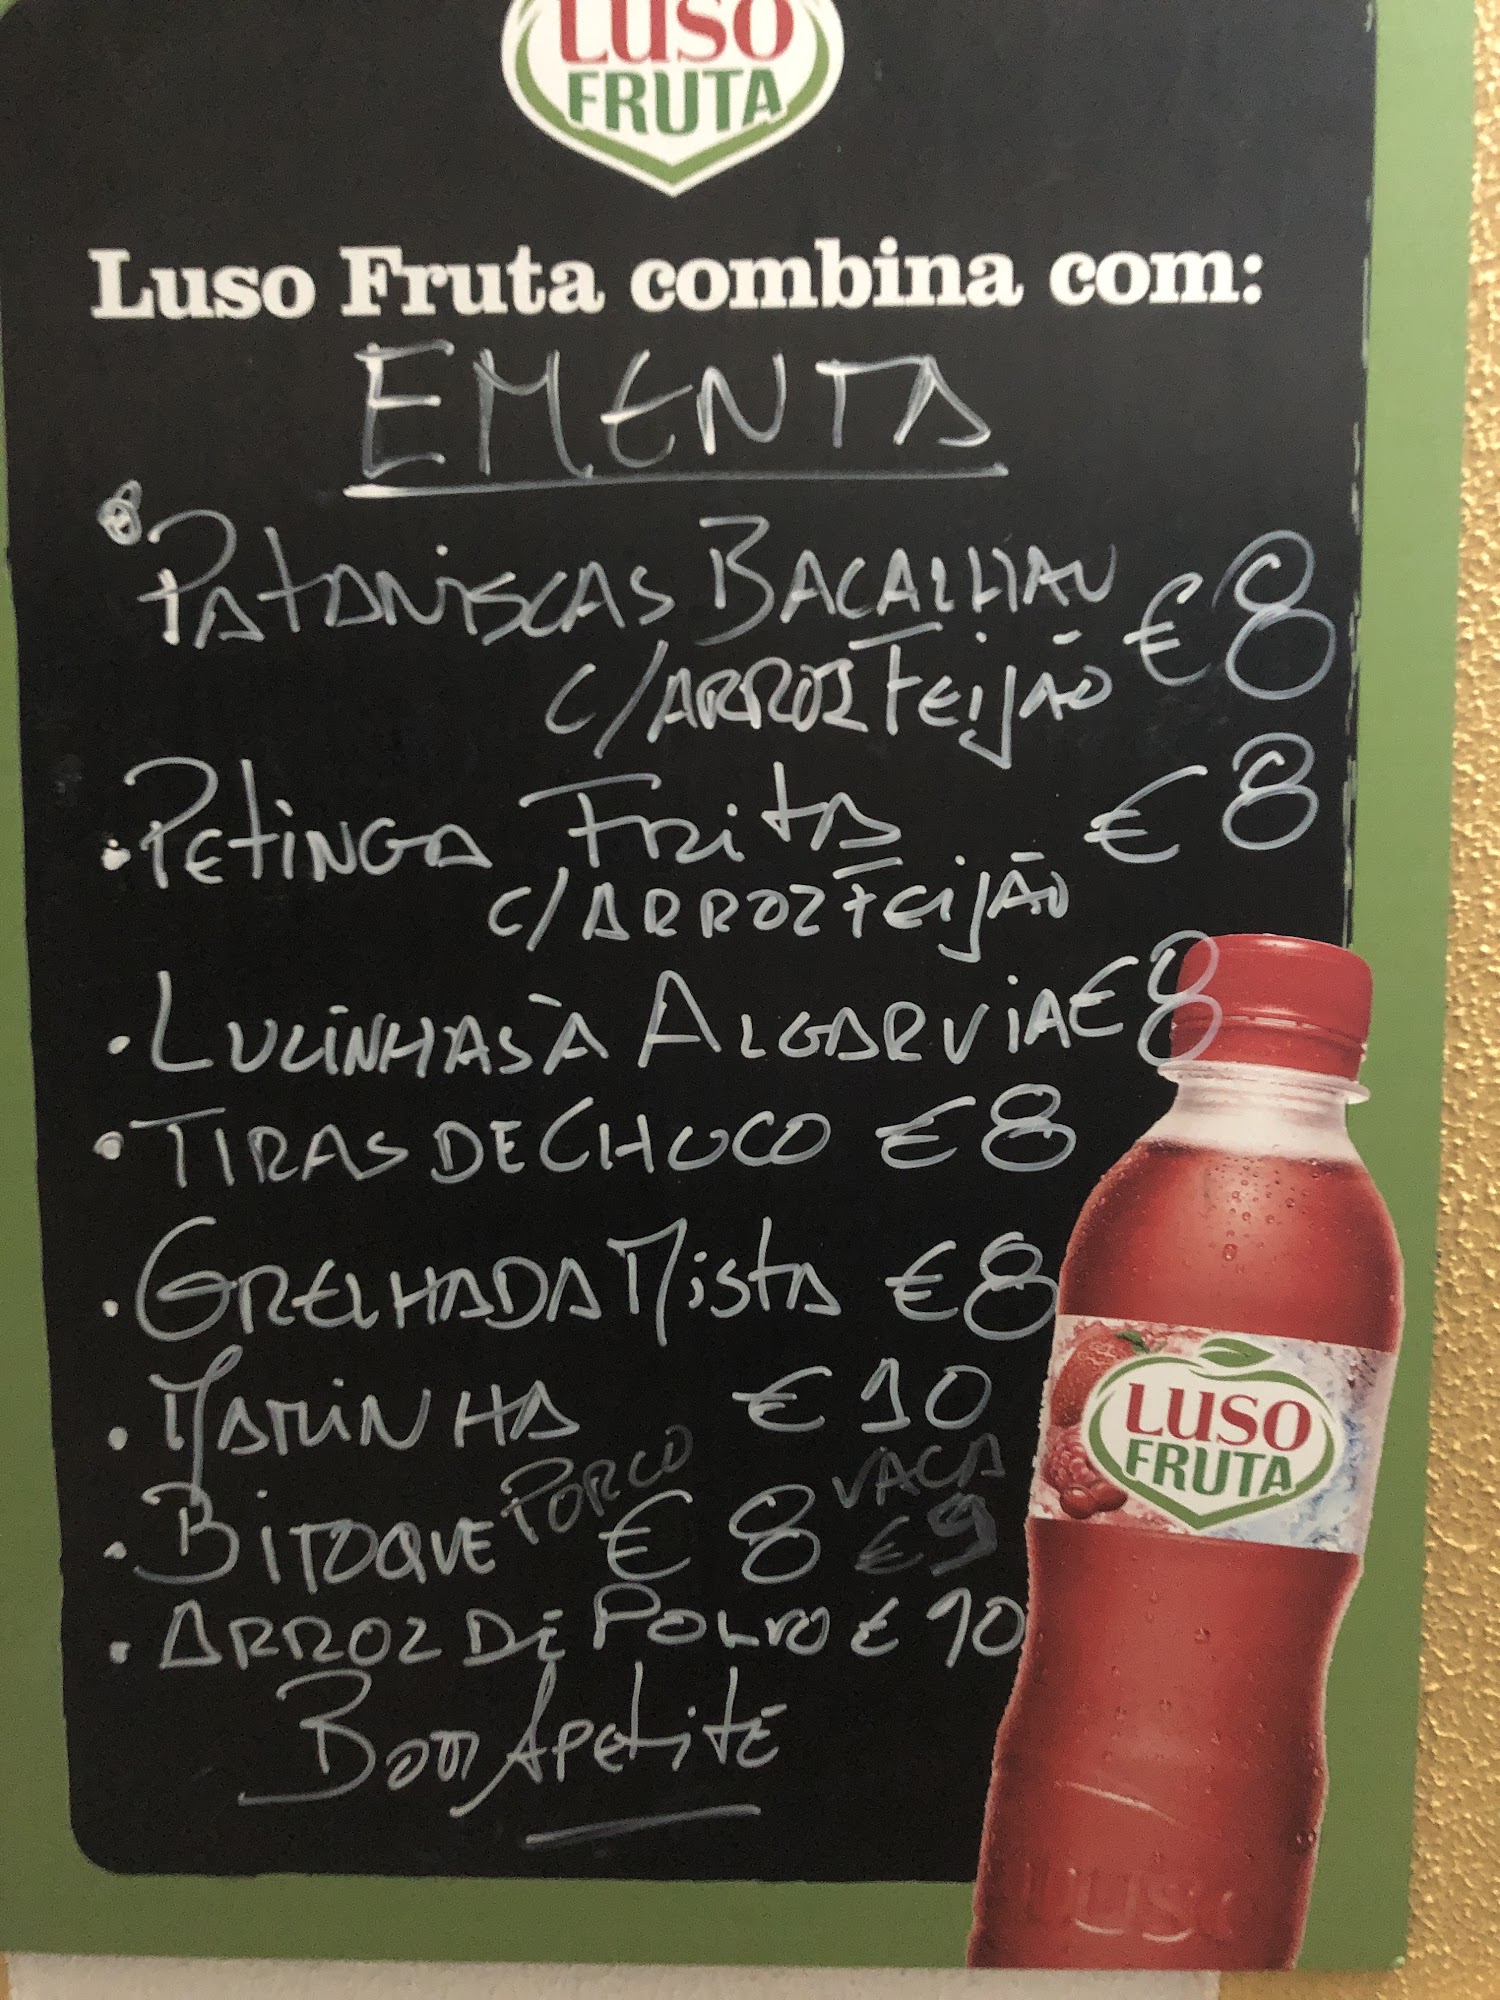 LUSO
FRUTA
Luso Fruta combina com:
EMENTA
PATANISCAS BACALHAU
C/ARROZ FEIJÃO €8
• PETINGA FRITA €8
C/ARROZ FEIJÃO
• LULINHAS À ALGARVIA €8
• TIRAS DE CHOCO €8
• GRELHADA MISTA €8
• MARINHA €10
• BITOQUE PORCO €8 VACA €9
• ARROZ DE POLVO €10
BOM APETITE
LUSO
FRUTA
LUSO